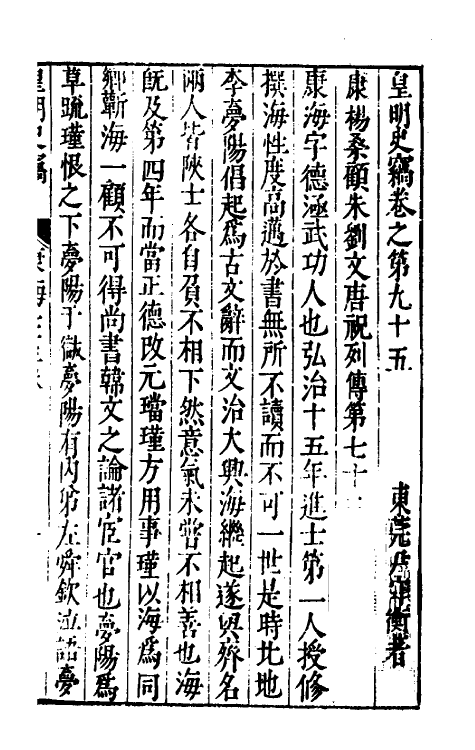 皇明史竊卷之第九十五
東莞尹衡著
康楊桑顧朱劉文唐祝列傳第七十
康海字德涵武功人也弘治十五年進士第一人授修
撰海性度高邁於書無所不讀而不可一世是時北地
李夢陽倡起爲古文辭而文治大興海繼起遂與齊名
兩人皆陝士各自負不相下然意氣未嘗不相善也海
旣及第四年而當正德改元璫瑾方用事瑾以海爲同
鄉蘄海一顧不可得尚書韓文之論諸宦官也夢陽爲
草疏瑾恨之下夢陽于獄夢陽有內弟左舜欽泣語夢
皇明史竊